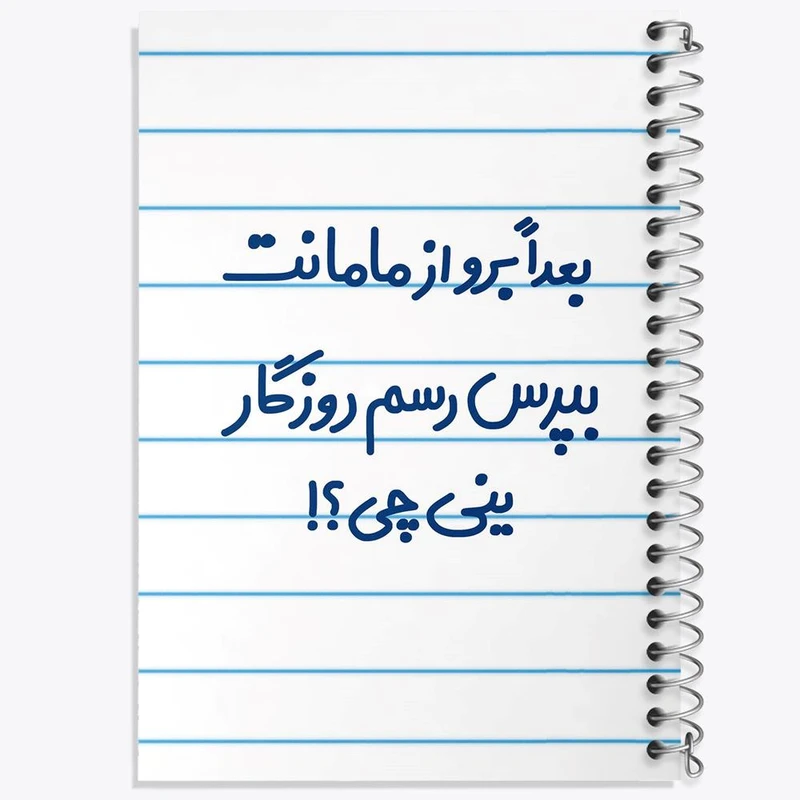 بعداً برو از مامانت
بپرس رسم روزگار
ینی چی؟!